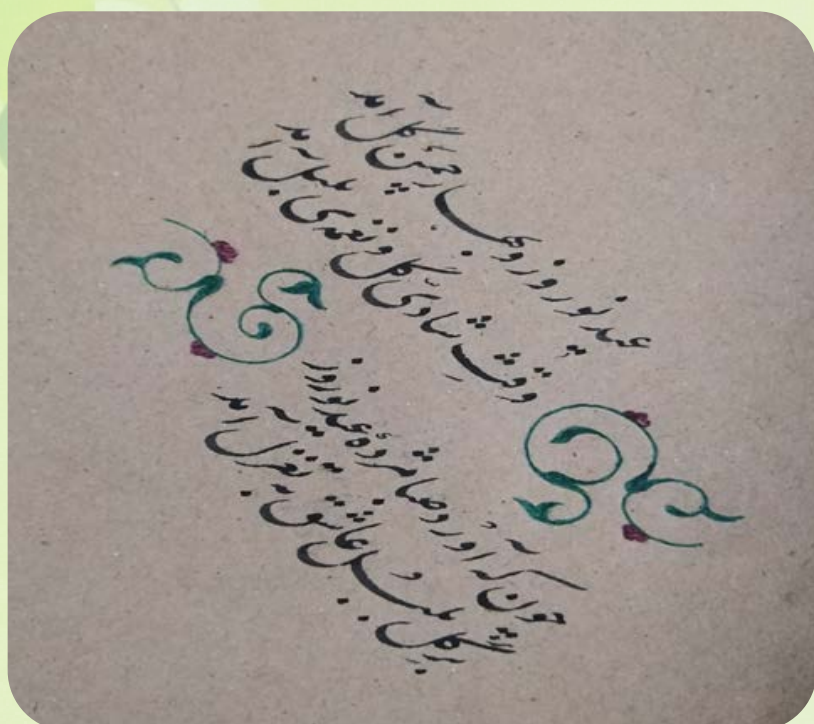 عید نوروز و بهار چمن گل آمد
وقتِ شادی گل و نغمه‌ی بلبل آمد
چون که آورد صبا مژدهٔ عید نوروز
بر گل بلبل عاشق به تغزل آمد